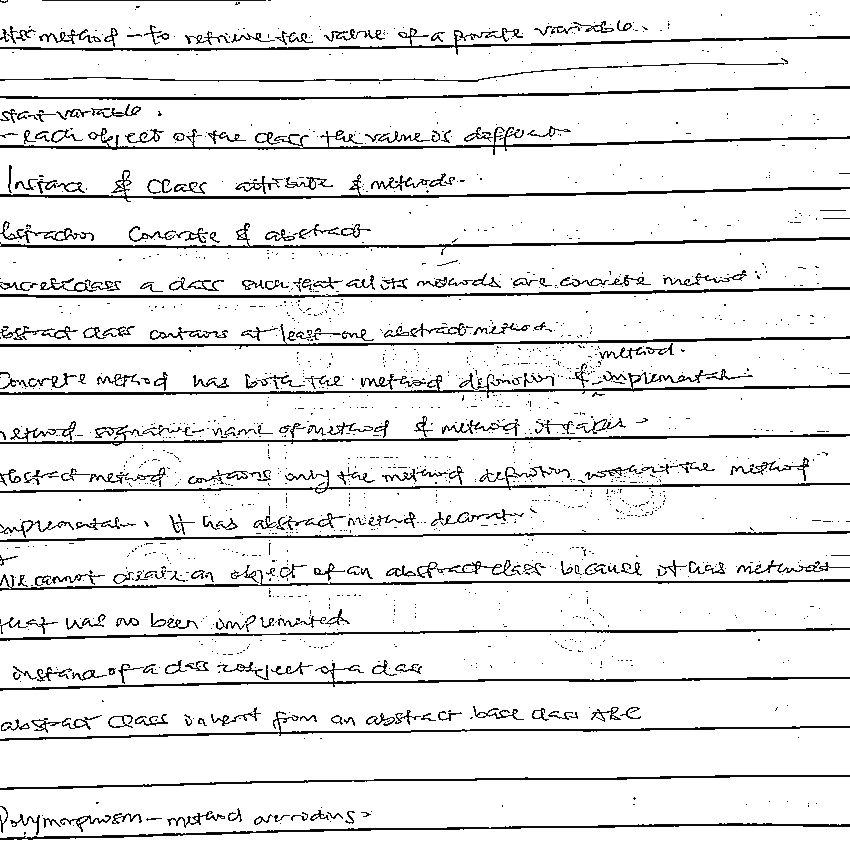 method - to retrieve the value of a private variable.
variable.
- each object of the class the value is
Instance & Class attribute & methods.
Concrete & abstract
class a class such that all its methods are concrete method.
abstract class contains at least one abstract method
method.
Concrete method has both the method definition &
method name of method & method it takes
Abstract method contains only the method definition without the method
It has abstract method
We cannot create an object of an abstract class because it has methods
that has no been implemented
instance of a class object of a class
abstract class inherit from an abstract base class ABC
Polymorphism - method